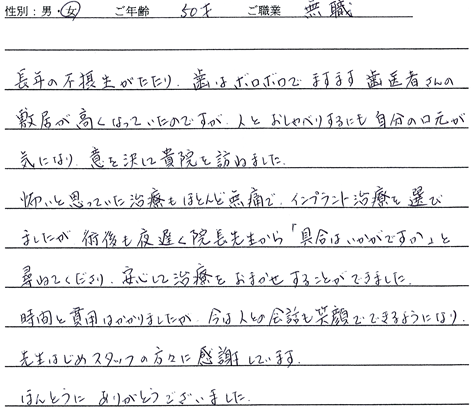 性別：男・女 ご年齢 50才 ご職業 無職
長年の不摂生がたたり、歯はボロボロでますます歯医者さんの
敷居が高くなっていたのですが、人とおしゃべりするにも自分の口元が
気になり、意を決して貴院を訪ねました。
怖いと思っていた治療もほとんど無痛で、インプラント治療を選び
ましたが術後も夜遅く院長先生から「具合はいかがですか」と
尋ねてくださり、安心して治療をおまかせすることができました。
時間と費用はかかりましたが、今は人との会話も笑顔でできるようになり、
先生はじめスタッフの方々に感謝しています。
ほんとうにありがとうございました。